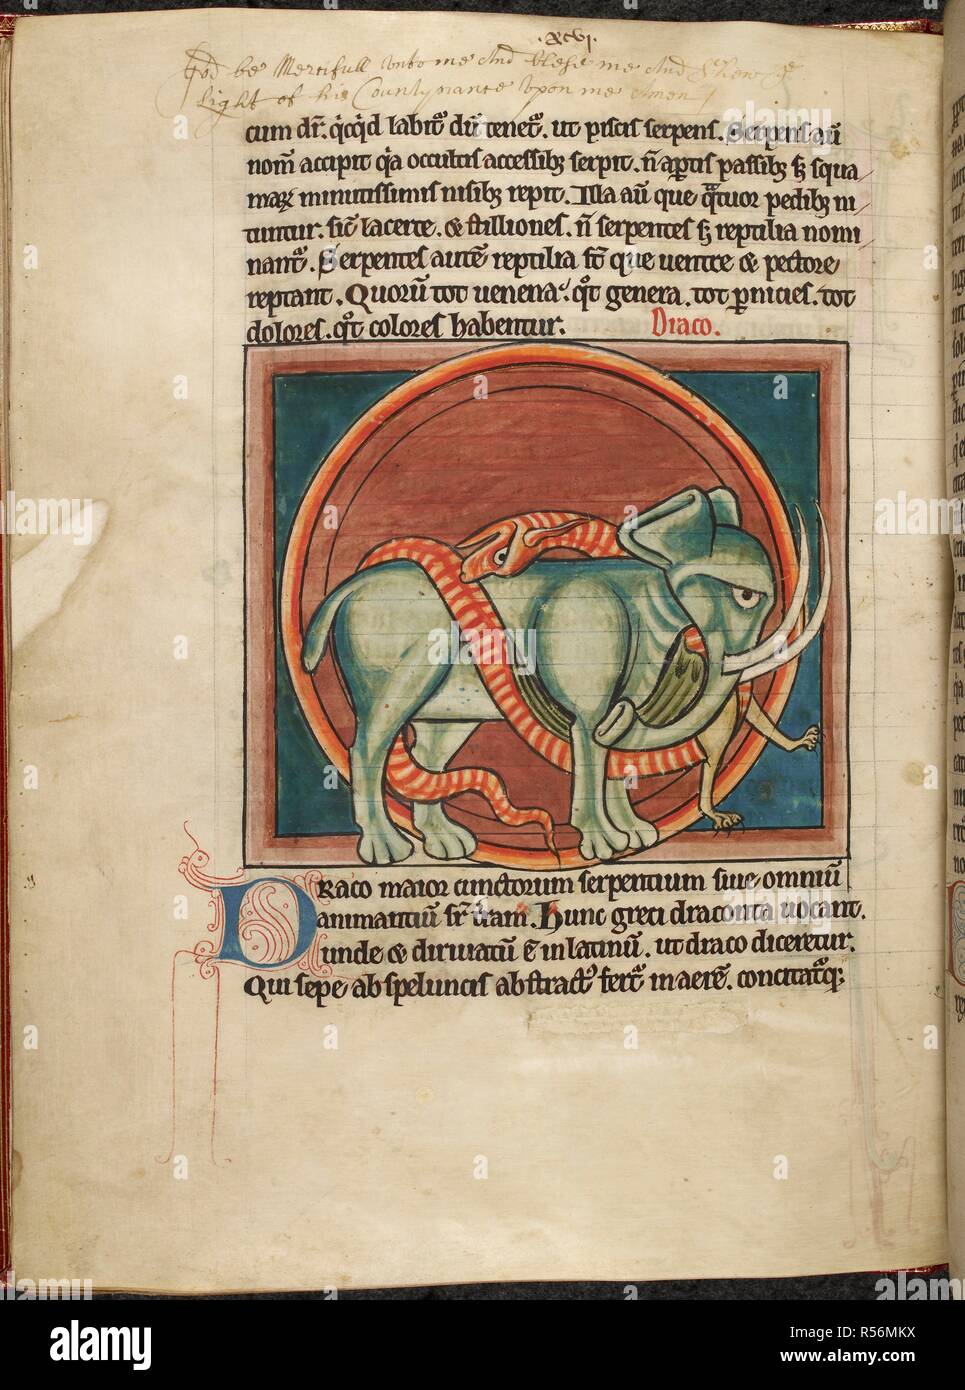 .xcvj.
God be Mercifull unto me And blese me And Shew ye
Light of his Countynance Upon me Amen
cum dr̄. q̇cq̇d labit᷑ dū tenet᷑. ut piscis serpens. Serpens aū
nom̄ accipit q̇a occultis accessibꝫ serpit. n̄ aꝑtis passibꝫ sꝫ squa
maꝝ minutissimis nisibꝫ repit. Illa aū que q̇tuor pedibꝫ ni
tuntur. sic̄ lacerte. & stilliones. n̄ serpentes sꝫ reptilia nomi
nant᷑. Serpentes autē reptilia st̄ que uentre & pectore
reptant. Quorū tot uenena. q̇t genera. tot ꝑnicies. tot
dolores. q̇t colores habentur. Draco.
DRaco maior cunctorum serpentium siue omniū
animantiū sr̄ t̄ram. Hunc greci draconta uocant.
unde & diriuatū ē in latinū. ut draco diceretur.
Qui sepe ab speluncis abstract᷒ fert᷑ in aerē. concitat᷑qꝫ
alamy
Image ID: R56MKX
www.alamy.com